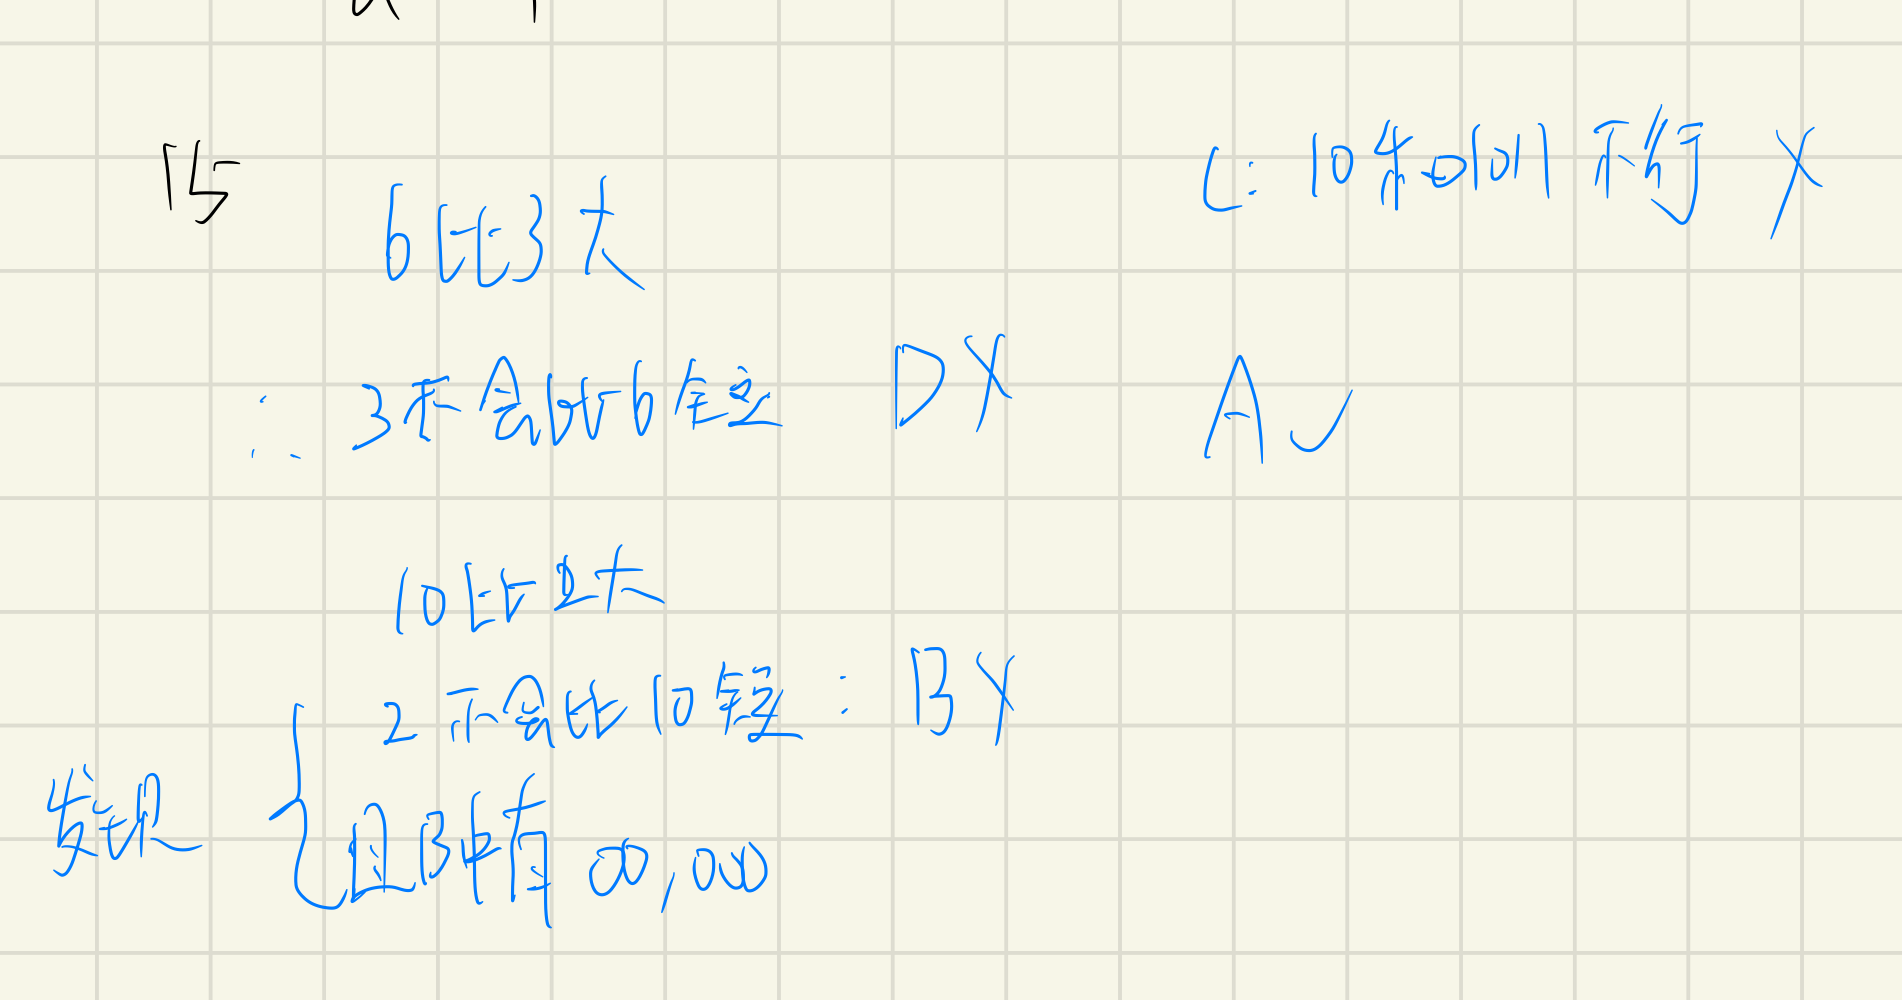 15
6比3大
∴ 3不会比6短 D X
10比2大
2不会比10短 : B X
发现
且B中有 00,000
C: 10和01011 不行 X
A ✓